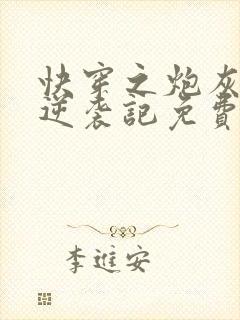 快穿之炮灰
逆袭記免費
李進安